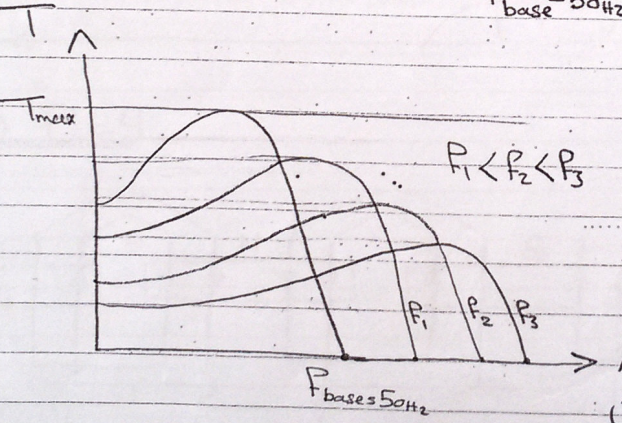 f base = 50Hz
T
Tmax
f1 < f2 < f3
f1 f2 f3
f base = 50Hz